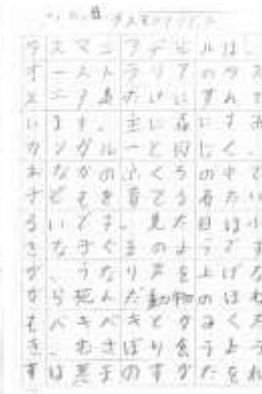 タスマニアデビルは、
オーストラリアのタス
マニア島だけにすんで
います。主に森にすみ
カンガルーと同じく、
おなかのふくろの中で
子どもを育てる有たい
るいです。見た目は小
さなくまのようです
が、うなり声を上げな
がら死んだ動物のほね
をバキバキとかみくだ
き、むさぼり食うよう
すは悪まのすがたをれ